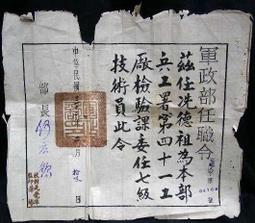 軍政部任職令
茲任冼德祖為本部
兵工署第四十一工
廠檢驗課委任七級
技術員此令
部長 何應欽
中華民國
月
日